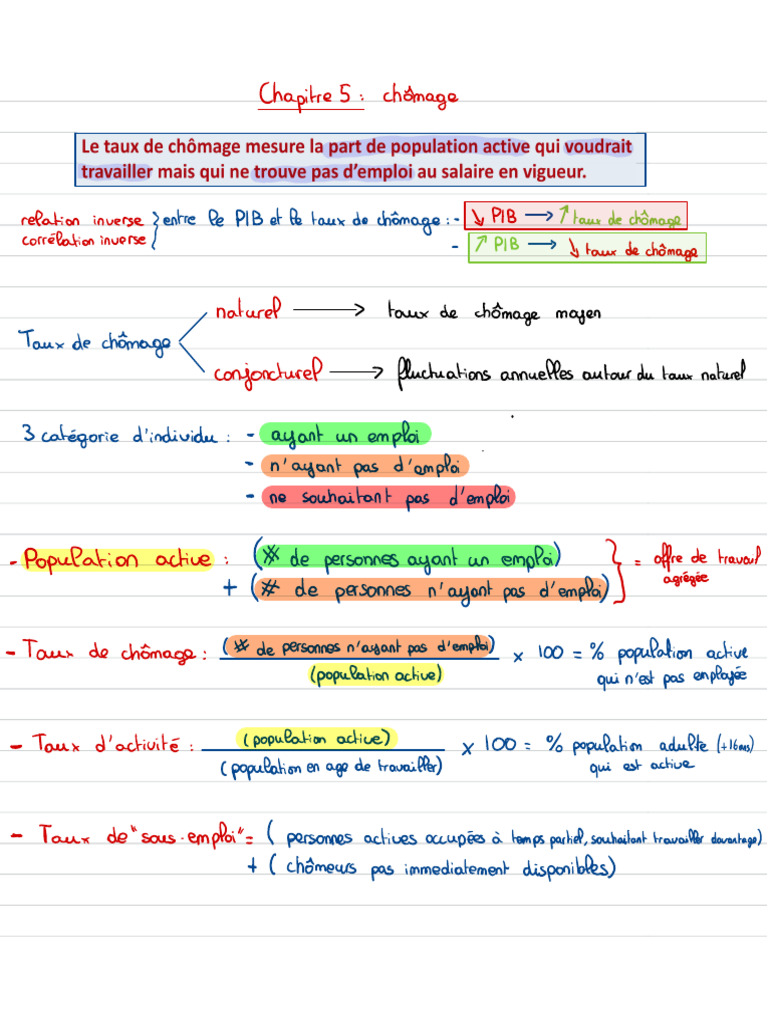 Chapitre 5 : chômage
Le taux de chômage mesure la part de population active qui voudrait
travailler mais qui ne trouve pas d'emploi au salaire en vigueur.
relation inverse } entre le PIB et le taux de chômage : - ↘ PIB → ↗ taux de chômage
corrélation inverse - ↗ PIB → ↘ taux de chômage
naturel → taux de chômage moyen
Taux de chômage
conjoncturel → fluctuations annuelles autour du taux naturel
3 catégorie d'individu : - ayant un emploi
- n'ayant pas d'emploi
- ne souhaitant pas d'emploi
- Population active : (# de personnes ayant un emploi) } = offre de travail
+ (# de personnes n'ayant pas d'emploi) agrégée
- Taux de chômage : (# de personnes n'ayant pas d'emploi) × 100 = % population active
(population active) qui n'est pas employée
- Taux d'activité : (population active) × 100 = % population adulte (+16ans)
(population en age de travailler) qui est active
- Taux de "sous-emploi" = ( personnes actives occupées à temps partiel, souhaitant travailler davantage)
+ ( chômeurs pas immediatement disponibles)